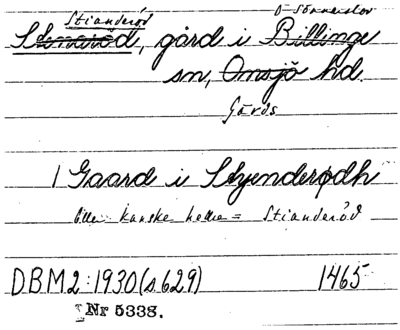 Stianderöd
Stenaröd, gård i Billinge
sn, Onsjö hd.
Gärds
1 Gaard i Styenderødh
Eller kanske hellre = Stianderöd
DBM2:1930(s.629) 1465
Nr 5338.